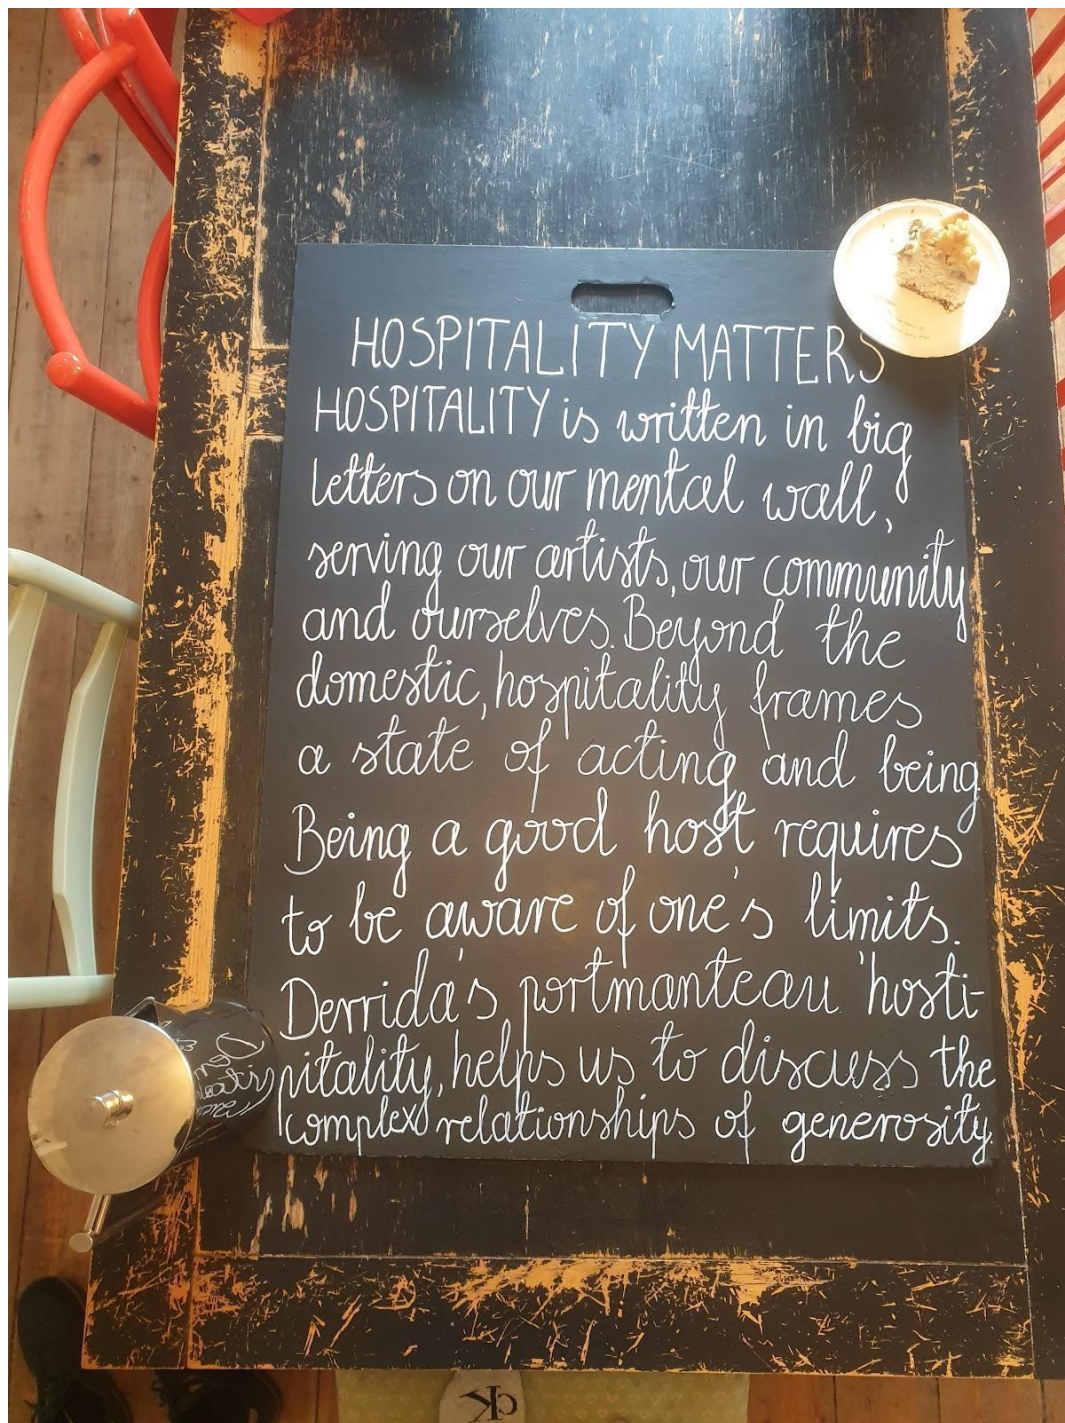 HOSPITALITY MATTERS
HOSPITALITY is written in big
letters on our mental wall,
serving our artists, our community
and ourselves. Beyond the
domestic, hospitality frames
a state of acting and being.
Being a good host requires
to be aware of one's limits.
Derrida's portmanteau 'hosti-
pitality, helps us to discuss the
complex relationships of generosity.
CK